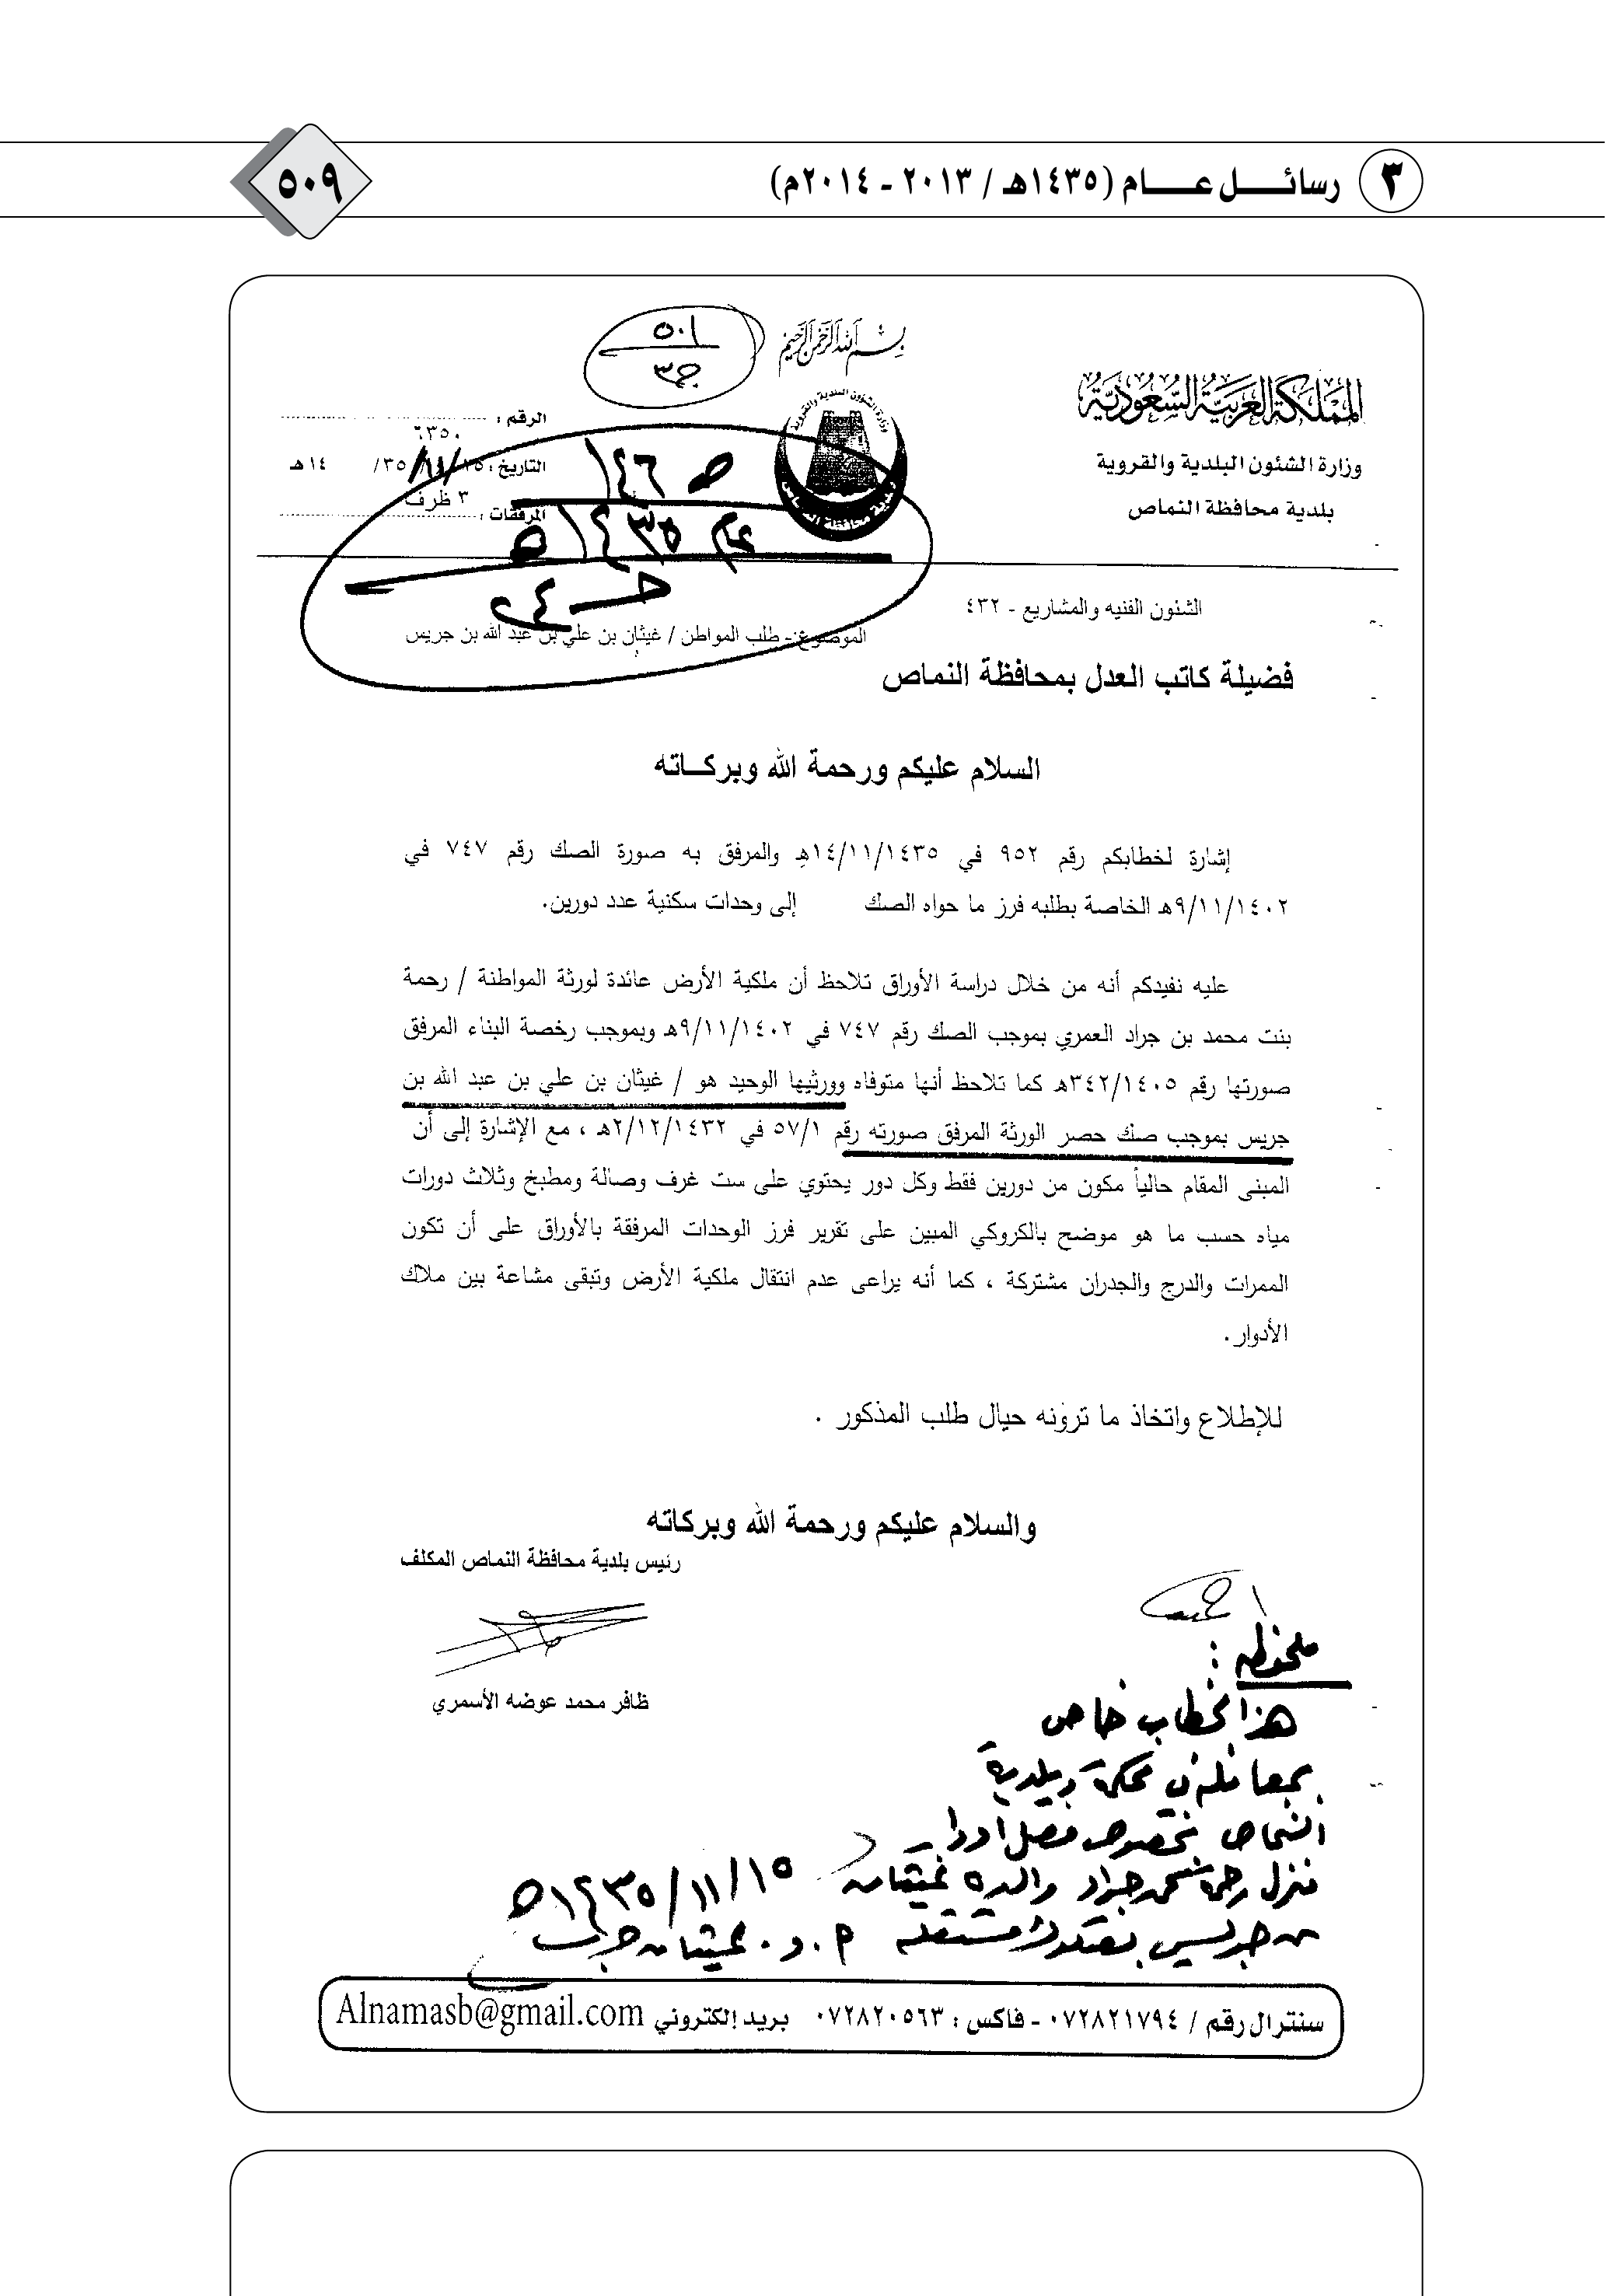 ٣ رسائل عام (١٤٣٥هـ / ٢٠١٣ - ٢٠١٤م)
٥٠٩
بسم الله الرحمن الرحيم
٥٠١
ج٣
المملكة العربية السعودية
وزارة الشئون البلدية والقروية
بلدية محافظة النماص
وزارة الشؤون البلدية والقروية
بلدية محافظة النماص
الرقم : ٦٣٥٠
التاريخ : ١٥/١١/٣٥ ١٤هـ
المرفقات : ٣ ظرف
ص ١٤٦
عام ١٤٣٥هـ
ح ٤
الشئون الفنيه والمشاريع - ٤٣٢
الموضوع:- طلب المواطن / غيثان بن علي بن عبد الله بن جريس
فضيلة كاتب العدل بمحافظة النماص
السلام عليكم ورحمة الله وبركـاته
إشارة لخطابكم رقم ٩٥٢ في ١٤/١١/١٤٣٥هـ والمرفق به صورة الصك رقم ٧٤٧ في
٩/١١/١٤٠٢هـ الخاصة بطلبه فرز ما حواه الصك إلى وحدات سكنية عدد دورين.
عليه نفيدكم أنه من خلال دراسة الأوراق تلاحظ أن ملكية الأرض عائدة لورثة المواطنة / رحمة
بنت محمد بن جراد العمري بموجب الصك رقم ٧٤٧ في ٩/١١/١٤٠٢هـ وبموجب رخصة البناء المرفق
صورتها رقم ٣٤٢/١٤٠٥هـ كما تلاحظ أنها متوفاه وورثيها الوحيد هو / غيثان بن علي بن عبد الله بن
جريس بموجب صك حصر الورثة المرفق صورته رقم ٥٧/١ في ٢/١٢/١٤٣٢هـ ، مع الإشارة إلى أن
المبنى المقام حالياً مكون من دورين فقط وكل دور يحتوي على ست غرف وصالة ومطبخ وثلاث دورات
مياه حسب ما هو موضح بالكروكي المبين على تقرير فرز الوحدات المرفقة بالأوراق على أن تكون
الممرات والدرج والجدران مشتركة ، كما أنه يراعى عدم انتقال ملكية الأرض وتبقى مشاعة بين ملاك
الأدوار.
للإطلاع واتخاذ ما ترونه حيال طلب المذكور .
والسلام عليكم ورحمة الله وبركاته
رئيس بلدية محافظة النماص المكلف
ظافر محمد عوضه الأسمري
ملحوظه :
هذا الخطاب خاص
بمعاملة في محكمة وبلدية
النماص بخصوص فصل ادوار
منزل رحمة بنت محمد جراد والدة غيثان
بن جريس بصكوك مستقله أ . د . غيثان جريس
١٥/١١/١٤٣٥هـ
سنترال رقم / ٠٧٢٨٢١٧٩٤ - فاكس : ٠٧٢٨٢٠٥٦٣ بريد إلكتروني Alnamasb@gmail.com